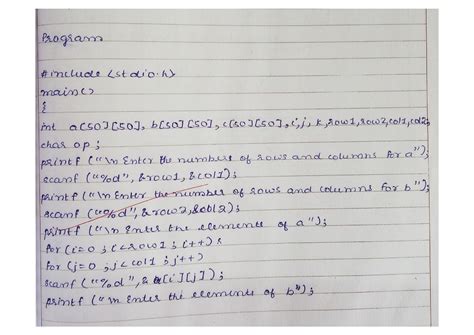 Program
#include <stdio.h>
main()
{
int a[50][50], b[50][50], c[50][50], i, j, k, row1, row2, col1, col2,
char op;
printf ("\n Enter the number of rows and columns for a");
scanf ("%d", &row1, &col1);
printf ("\n Enter the number of rows and columns for b");
scanf ("%d", &row2, &col2);
printf ("\n Enter the elements of a");
for (i=0; i<row1; i++)
for (j=0; j<col1; j++)
scanf ("%d", &a[i][j]);
printf ("\n Enter the elements of b");